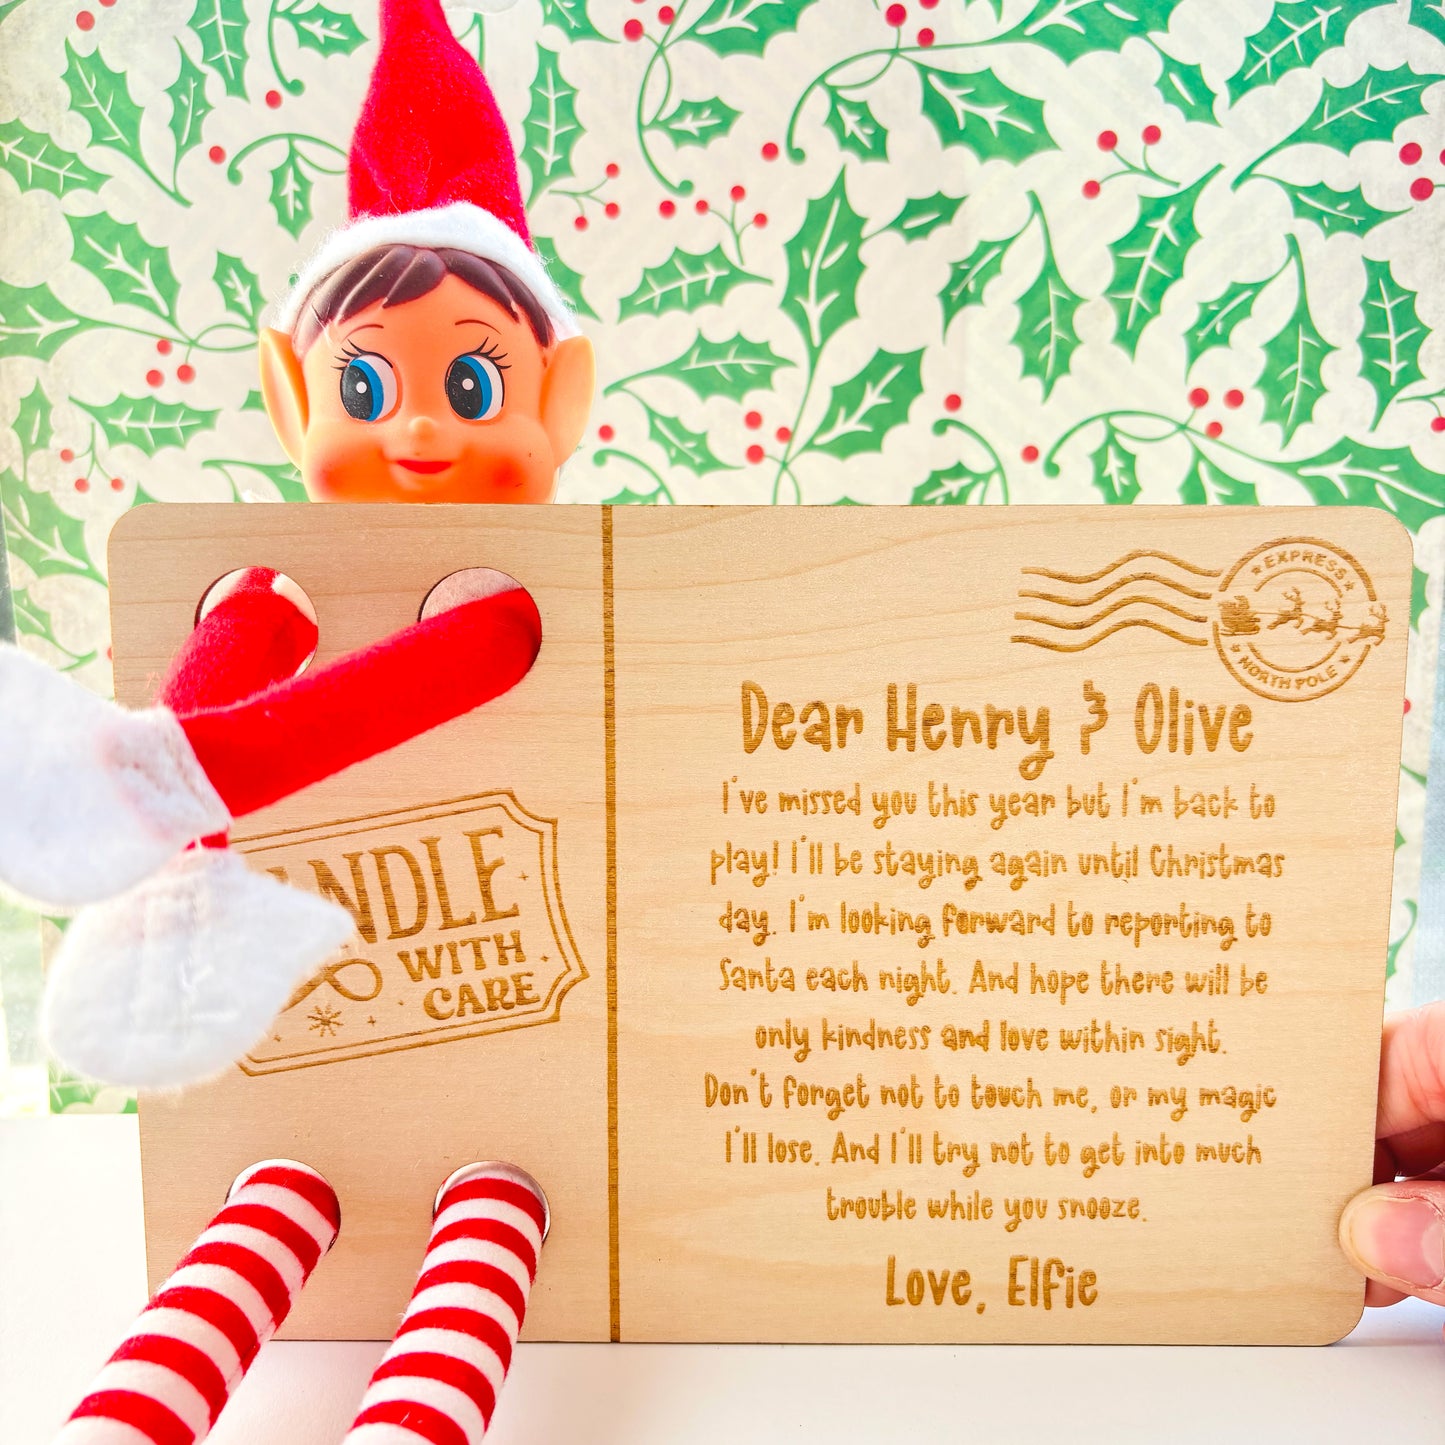 EXPRESS
NORTH POLE
WITH
CARE
Dear Henry & Olive
I've missed you this year but I'm back to
play! I'll be staying again until Christmas
day. I'm looking forward to reporting to
Santa each night. And hope there will be
only kindness and love within sight.
Don't forget not to touch me, or my magic
I'll lose. And I'll try not to get into much
trouble while you snooze.
Love, Elfie